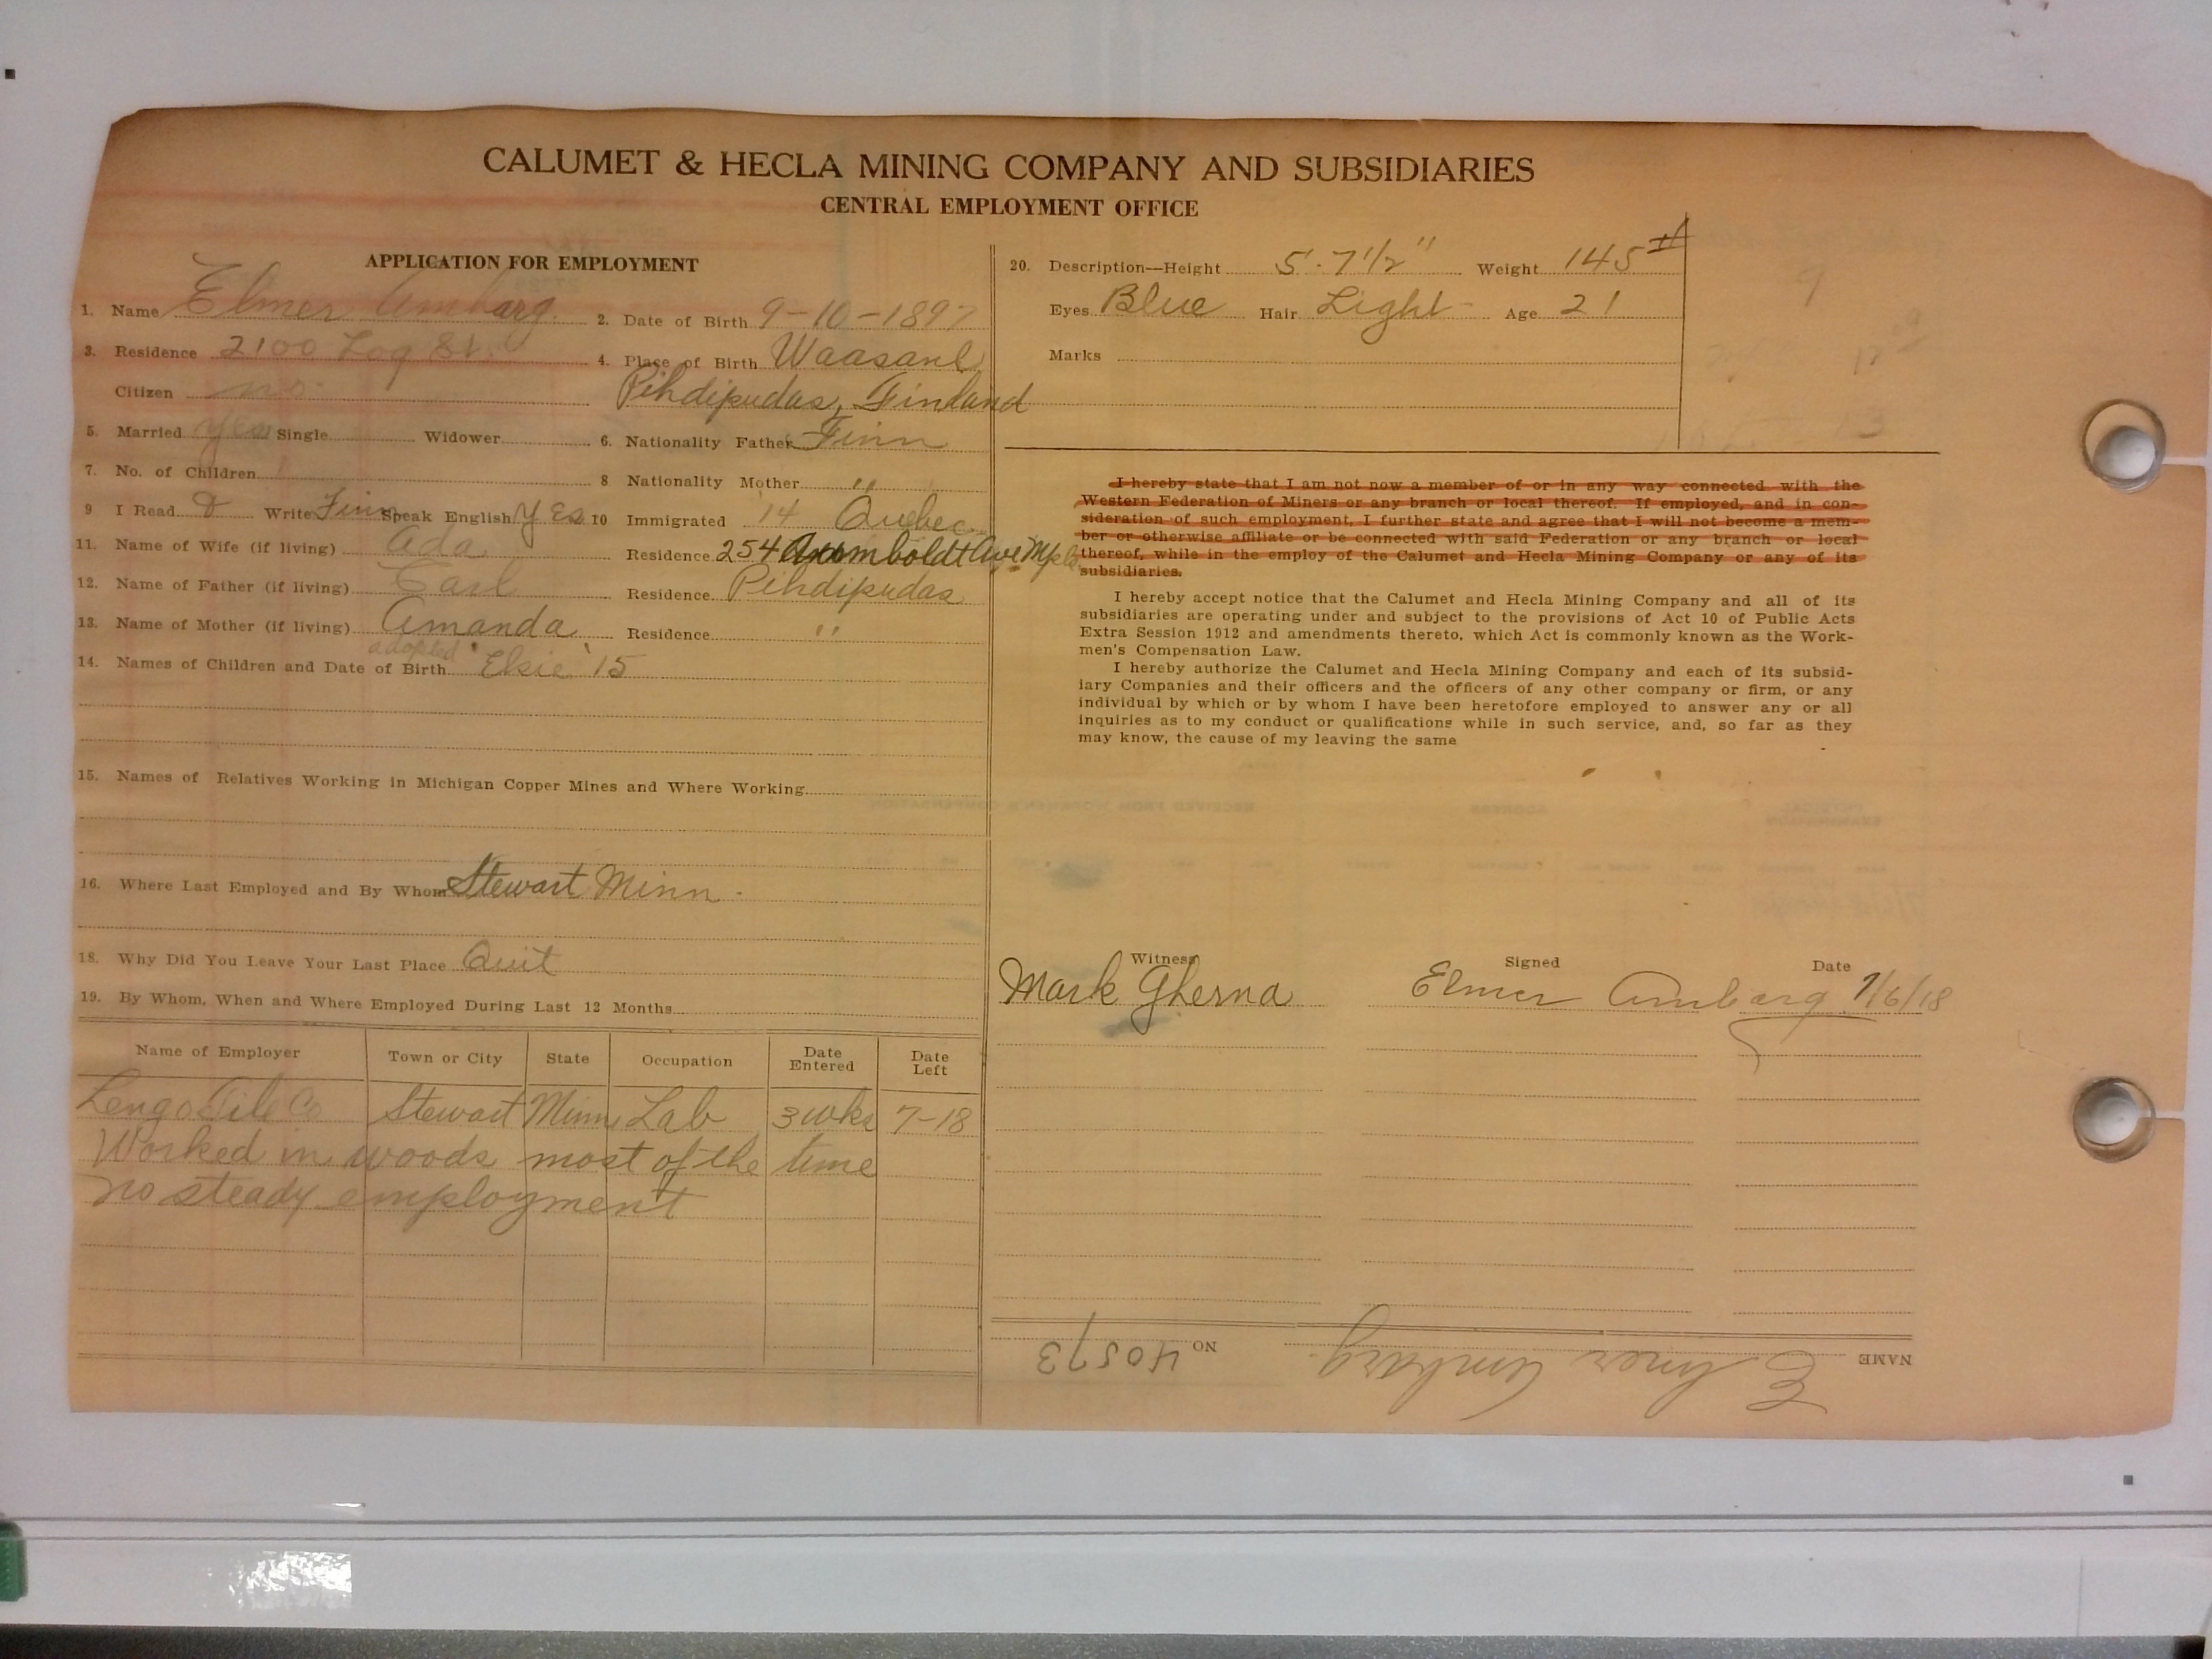 CALUMET & HECLA MINING COMPANY AND SUBSIDIARIES
CENTRAL EMPLOYMENT OFFICE
APPLICATION FOR EMPLOYMENT
1. Name Elmer Amberg 2. Date of Birth 9-10-1897
3. Residence 2100 Log St. 4. Place of Birth Waasanl
Citizen no. Pihdipudas, Finland
5. Married yes Single Widower 6. Nationality Father Finn
7. No. of Children 1 8 Nationality Mother "
9 I Read & Write Finn Speak English Yes 10 Immigrated '14 Quebec
11. Name of Wife (if living) Ada Residence 254 Humboldt Ave Mpls
12. Name of Father (if living) Earl Residence Pihdipudas
13. Name of Mother (if living) Amanda Residence "
adopted
14. Names of Children and Date of Birth Elsie '15
15. Names of Relatives Working in Michigan Copper Mines and Where Working
16. Where Last Employed and By Whom Stewart Minn.
18. Why Did You Leave Your Last Place Quit
19. By Whom, When and Where Employed During Last 12 Months
Name of Employer Town or City State Occupation Date Entered Date Left
Tile Co Stewart Minn Lab 3 wks 7-18
Worked in woods most of the time
no steady employment
20. Description—Height 5'-7 1/2" Weight 145 #
Eyes Blue Hair Light Age 21
Marks
I hereby state that I am not now a member of or in any way connected with the
Western Federation of Miners or any branch or local thereof. If employed, and in con-
sideration of such employment, I further state and agree that I will not become a mem-
ber or otherwise affiliate or be connected with said Federation or any branch or local
thereof, while in the employ of the Calumet and Hecla Mining Company or any of its
subsidiaries.
I hereby accept notice that the Calumet and Hecla Mining Company and all of its
subsidiaries are operating under and subject to the provisions of Act 10 of Public Acts
Extra Session 1912 and amendments thereto, which Act is commonly known as the Work-
men's Compensation Law.
I hereby authorize the Calumet and Hecla Mining Company and each of its subsid-
iary Companies and their officers and the officers of any other company or firm, or any
individual by which or by whom I have been heretofore employed to answer any or all
inquiries as to my conduct or qualifications while in such service, and, so far as they
may know, the cause of my leaving the same
Witness Signed Date
Mark Gherna Elmer Amberg 7/6/18
NAME Elmer Amberg NO 40573